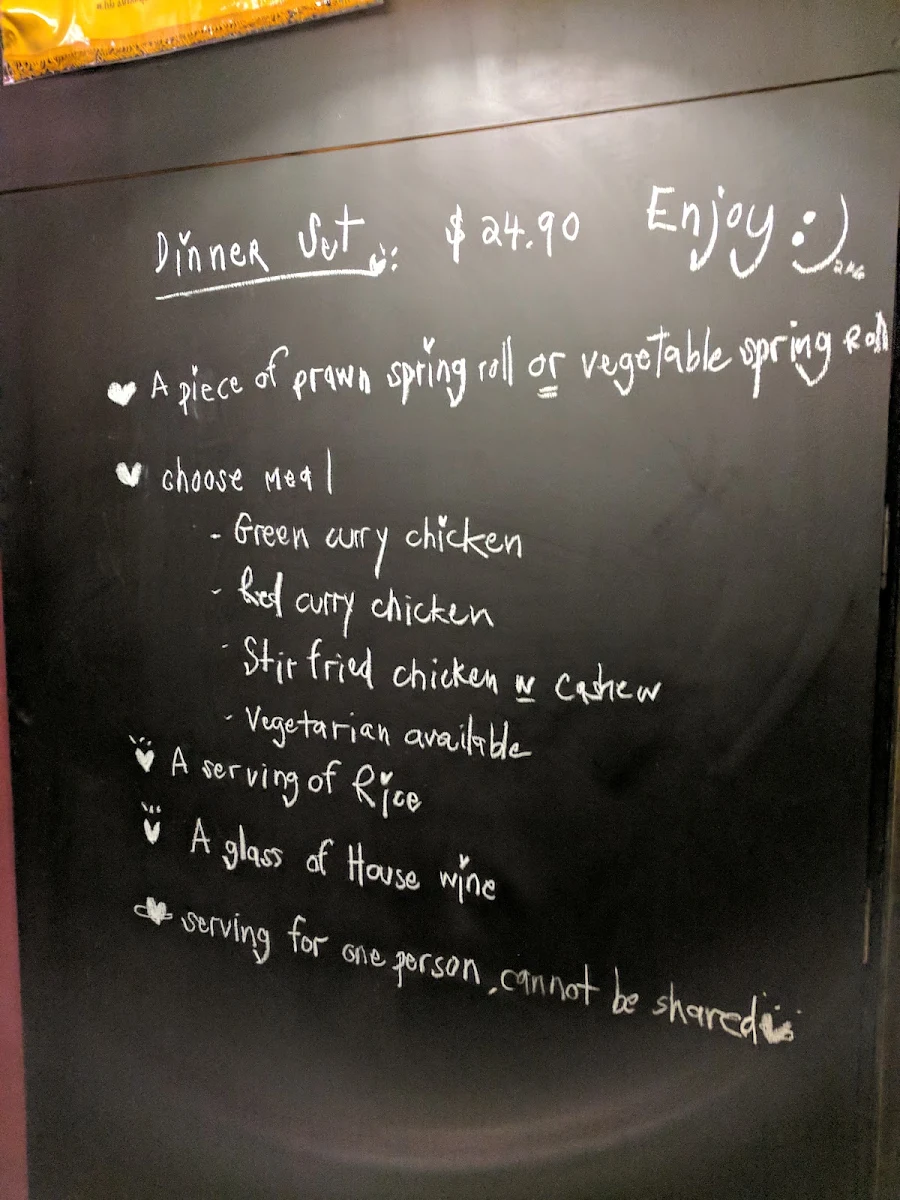 Dinner Set $24.90 Enjoy :)
A piece of prawn spring roll or vegetable spring Roll
choose Meal
- Green curry chicken
- Red curry chicken
- Stir fried chicken w cashew
- Vegetarian available
A serving of Rice
A glass of House wine
serving for one person, cannot be shared